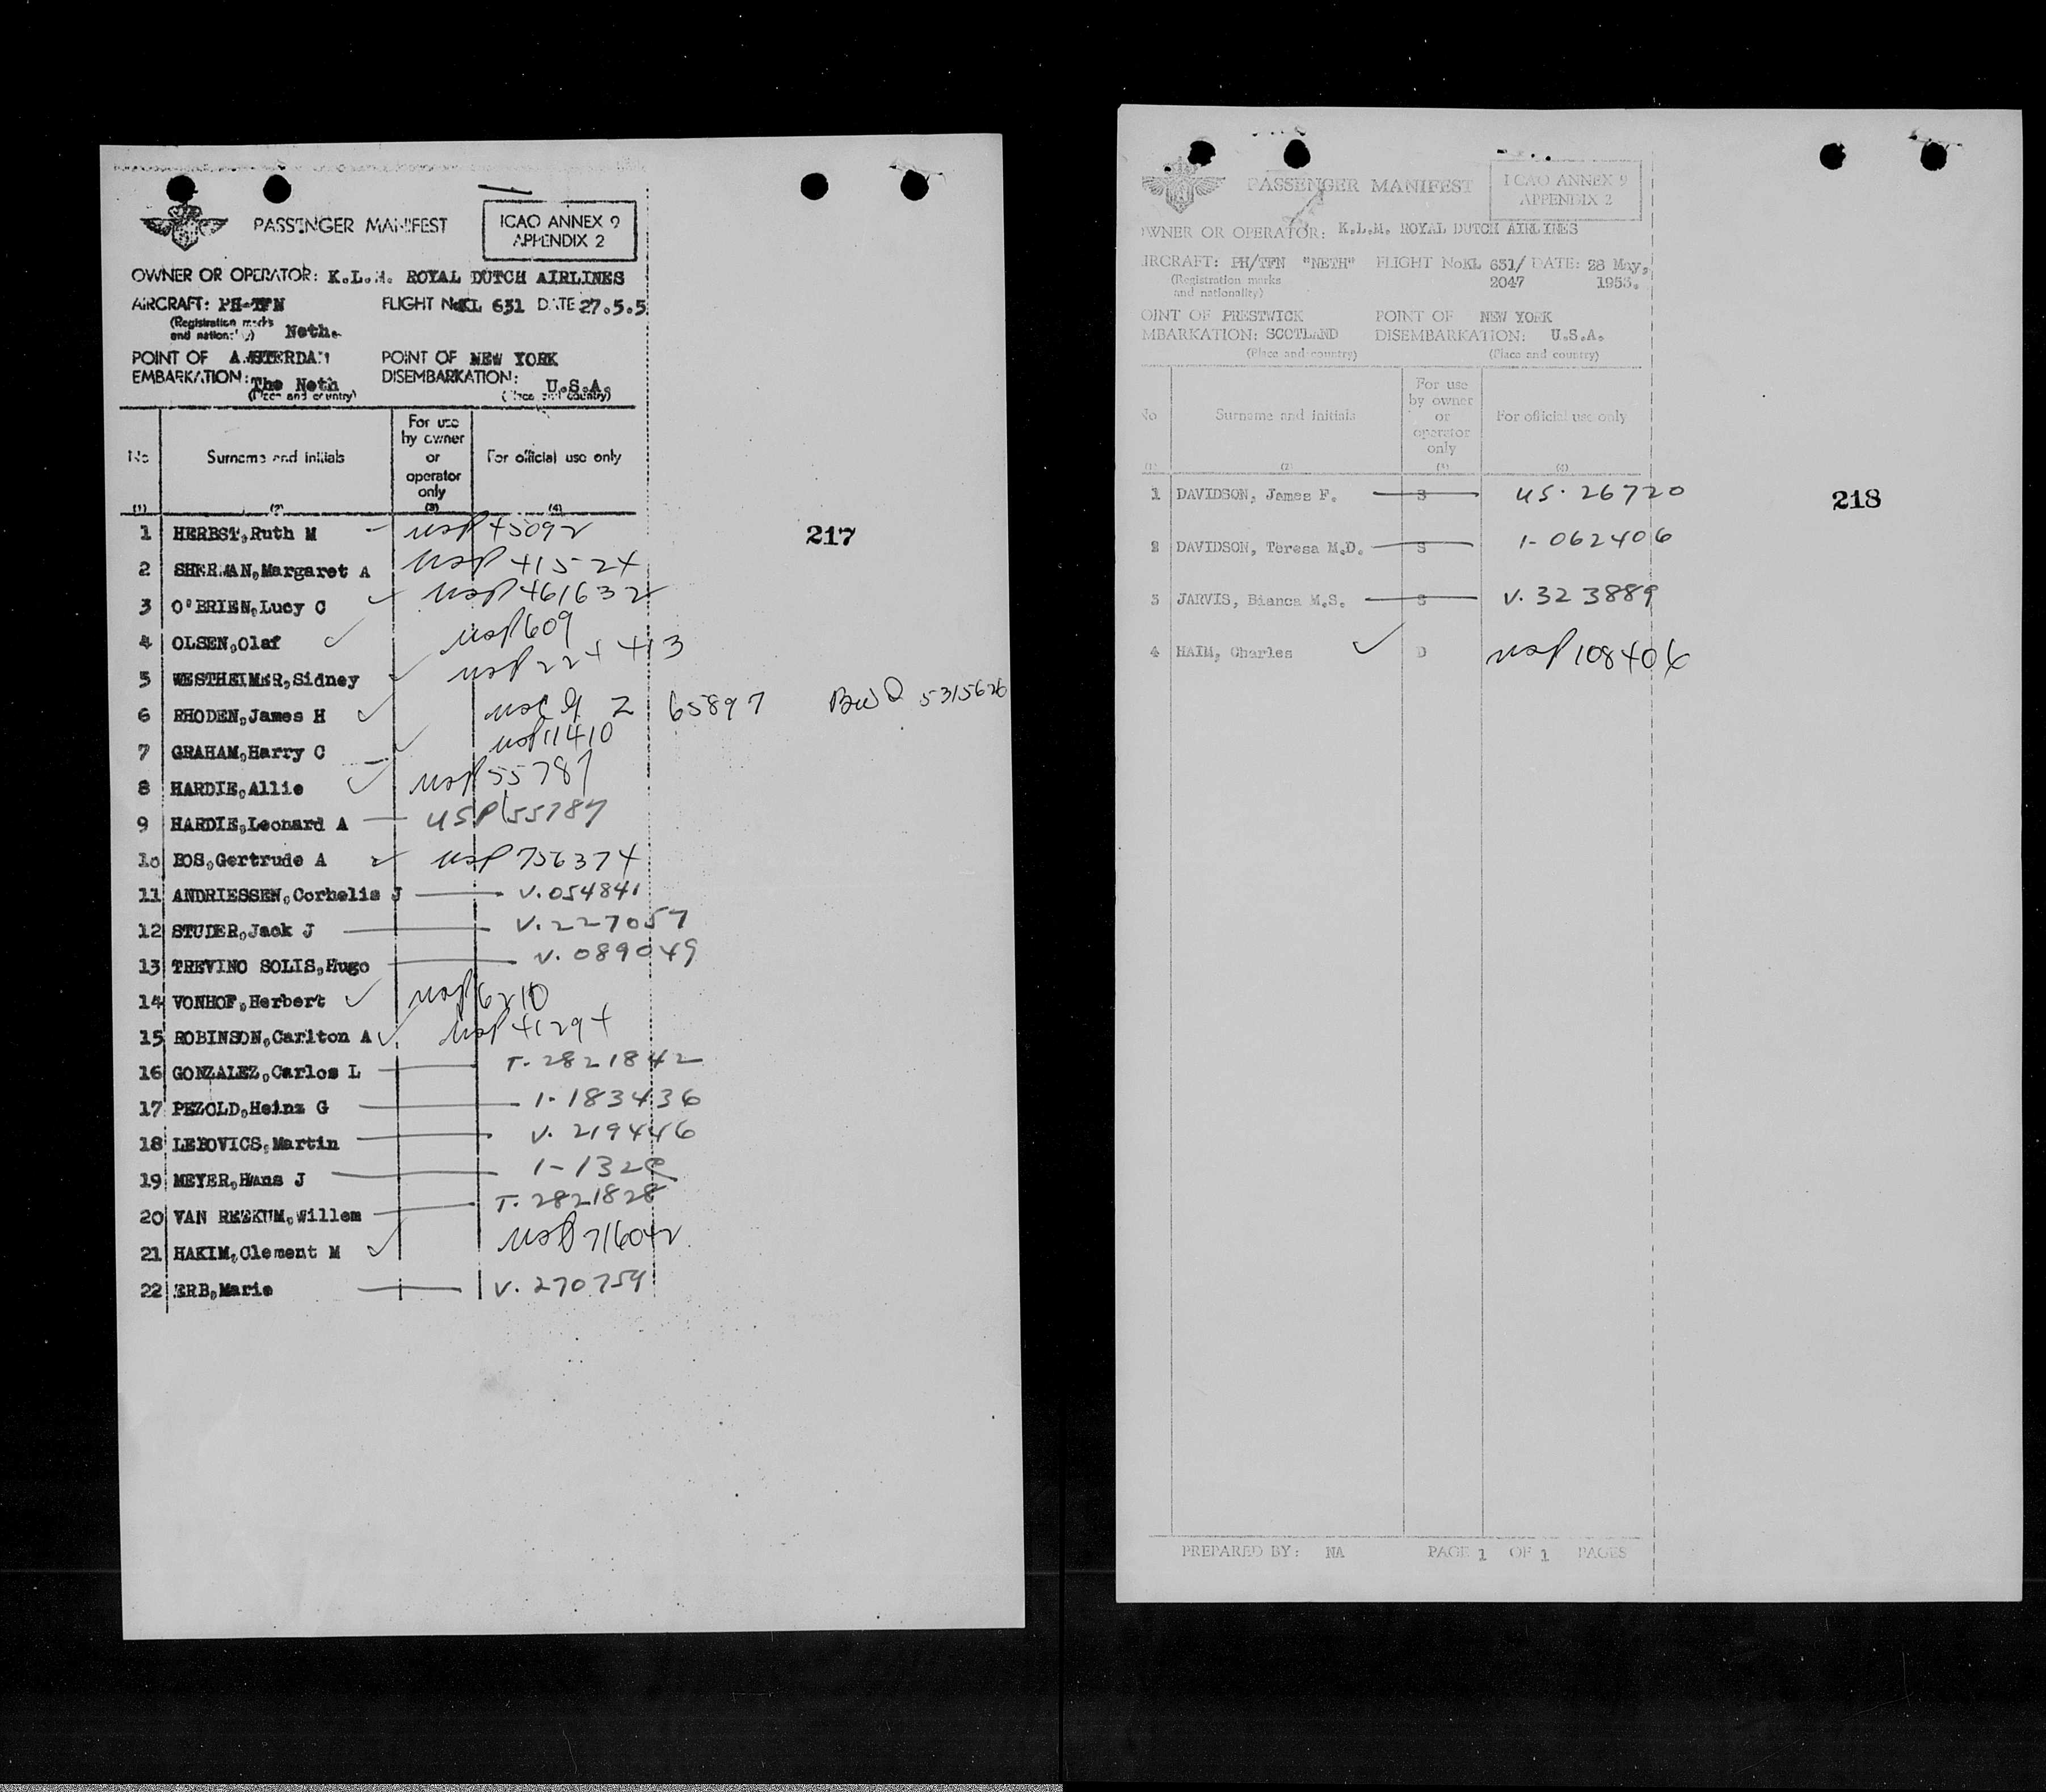 PASSENGER MANIFEST
ICAO ANNEX 9
APPENDIX 2
OWNER OR OPERATOR: K.L.M. ROYAL DUTCH AIRLINES
AIRCRAFT: PH-TFN FLIGHT No KL 631 DATE 27.5.5
(Registration marks
and nationality) Neth.
POINT OF AMSTERDAM POINT OF NEW YORK
EMBARKATION: The Neth DISEMBARKATION: U.S.A.
(Place and country) (Place and country)
No Surname and initials For use by owner or operator only For official use only
(1) (2) (3) (4)
217
1 HERBST, Ruth M usp 45092
2 SHERMAN, Margaret A usp 41524
3 O'BRIEN, Lucy C usp 461632
4 OLSEN, Olaf usp 609
5 WESTHEIMER, Sidney usp 224413
6 RHODEN, James H Z 65897 5315626
7 GRAHAM, Harry C usp 11410
8 HARDIE, Allie usp 55787
9 HARDIE, Leonard A USP 55787
10 BOS, Gertrude A usp 756374
11 ANDRIESSEN, Cornelis J V. 054841
12 STUDER, Jack J V. 227057
13 TREVINO SOLIS, Hugo V. 089049
14 VONHOF, Herbert usp 6210
15 ROBINSON, Carlton A usp 41294
16 GONZALEZ, Carlos L T. 2821842
17 PEZOLD, Heinz G I-183436
18 LEBOVICS, Martin V. 219446
19 MEYER, Hans J I-132
20 VAN REEKUM, Willem T. 2821828
21 HAKIM, Clement M usp 716042
22 ERB, Marie V. 270759
PASSENGER MANIFEST
ICAO ANNEX 9
APPENDIX 2
OWNER OR OPERATOR: K.L.M. ROYAL DUTCH AIRLINES
IRCRAFT: PH/TFN "NETH" FLIGHT No KL 631/ DATE: 28 May,
(Registration marks 2047 1953.
and nationality)
OINT OF PRESTWICK POINT OF NEW YORK
MBARKATION: SCOTLAND DISEMBARKATION: U.S.A.
(Place and country) (Place and country)
No Surname and initials For use by owner or operator only For official use only
(1) (2) (3) (4)
218
1 DAVIDSON, James F. S US. 26720
2 DAVIDSON, Teresa M.D. S I-062406
3 JARVIS, Bianca M.S. S V. 323889
4 HAIM, Charles D usp 108406
PREPARED BY: NA PAGE 1 OF 1 PAGES